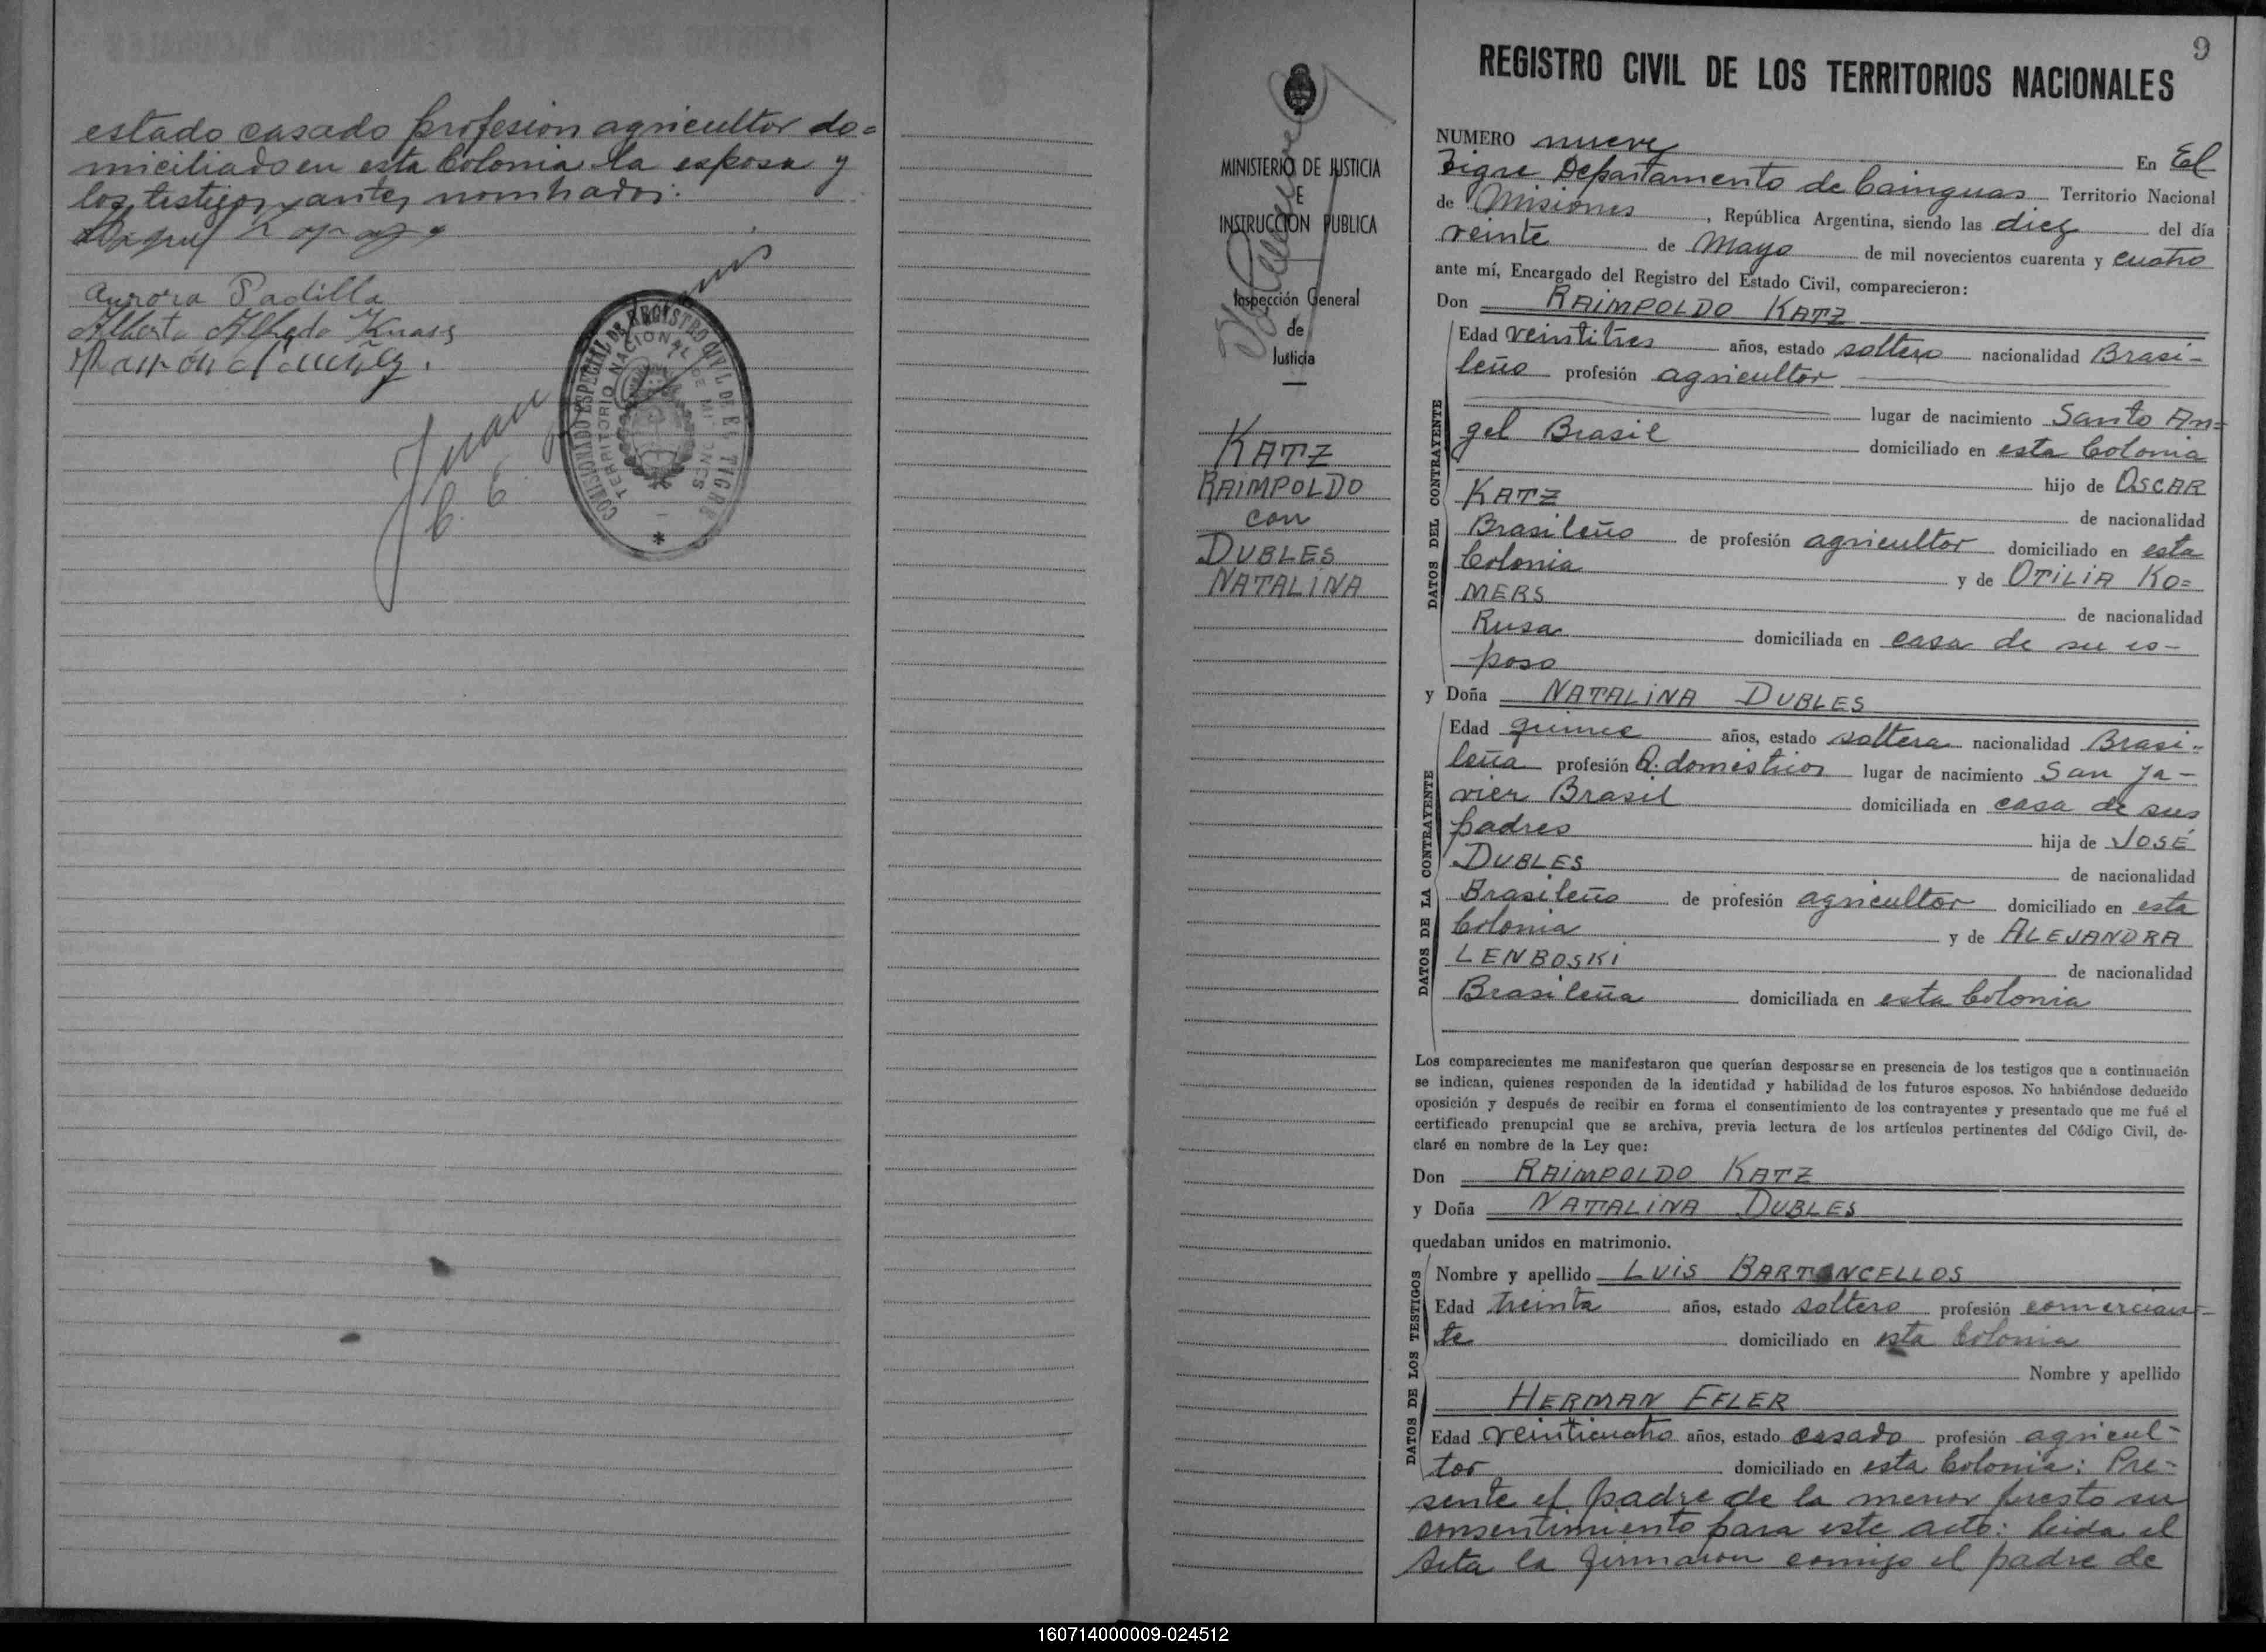 estado casado profesion agricultor do=
miciliado en esta Colonia la esposa y
los testigos antes nombrados.
Aurora Padilla
Alberto Alfredo Knass
Ramón Nuñez.
Juan
C. E.
COMISIONADO ESPECIAL DE REGISTRO CIVIL DE EL TIGRE
TERRITORIO NACIONAL DE MISIONES
MINISTERIO DE JUSTICIA
E
INSTRUCCION PUBLICA
Inspección General
de
Justicia
KATZ
RAIMPOLDO
con
DUBLES
NATALINA
9
REGISTRO CIVIL DE LOS TERRITORIOS NACIONALES
NUMERO nueve En El
Tigre Departamento de Cainguas Territorio Nacional
de Misiones, República Argentina, siendo las diez del día
veinte de Mayo de mil novecientos cuarenta y cuatro
ante mí, Encargado del Registro del Estado Civil, comparecieron:
Don RAIMPOLDO KATZ
DATOS DEL CONTRAYENTE
Edad veintitres años, estado soltero nacionalidad Brasi-
leño profesión agricultor
lugar de nacimiento Santo An=
gel Brasil domiciliado en esta Colonia
hijo de OSCAR
KATZ de nacionalidad
Brasileño de profesión agricultor domiciliado en esta
Colonia y de OTILIA KO=
MERS de nacionalidad
Rusa domiciliada en casa de su es-
poso
y Doña NATALINA DUBLES
DATOS DE LA CONTRAYENTE
Edad quince años, estado soltera nacionalidad Brasi-
leña profesión Q. domésticos lugar de nacimiento San Ja-
vier Brasil domiciliada en casa de sus
padres hija de JOSÉ
DUBLES de nacionalidad
Brasileño de profesión agricultor domiciliado en esta
Colonia y de ALEJANDRA
LENBOSKI de nacionalidad
Brasileña domiciliada en esta Colonia
Los comparecientes me manifestaron que querían desposarse en presencia de los testigos que a continuación
se indican, quienes responden de la identidad y habilidad de los futuros esposos. No habiéndose deducido
oposición y después de recibir en forma el consentimiento de los contrayentes y presentado que me fué el
certificado prenupcial que se archiva, previa lectura de los artículos pertinentes del Código Civil, de-
claré en nombre de la Ley que:
Don RAIMPOLDO KATZ
y Doña NATALINA DUBLES
quedaban unidos en matrimonio.
DATOS DE LOS TESTIGOS
Nombre y apellido LUIS BARTONCELLOS
Edad treinta años, estado soltero profesión comercian-
te domiciliado en esta Colonia
Nombre y apellido
HERMAN EFLER
Edad veinticuatro años, estado casado profesión agricul-
tor domiciliado en esta Colonia: Pre-
sente el padre de la menor presto su
consentimiento para este acto: leida el
Acta la firmaron comigo el padre de
160714000009-024512